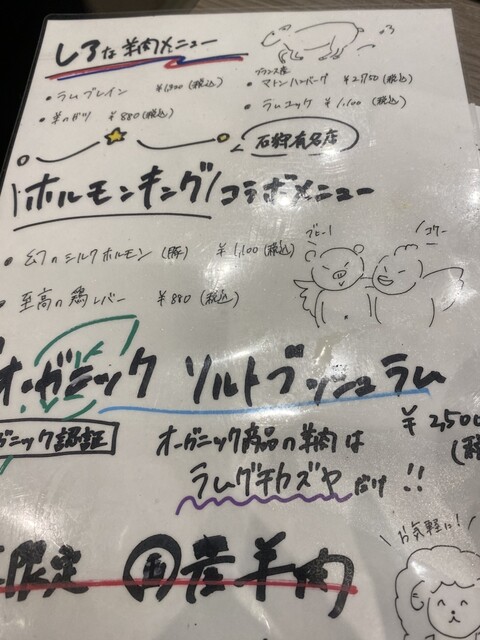 しろな羊肉メニュー
・ラムブレイン ¥1,320(税込)
・羊のガツ ¥880(税込)
フランス産
・マトンハンバーグ ¥2,750(税込)
・ラムユッケ ¥1,100(税込)
石狩有名店
ホルモンキング コラボメニュー
・幻のシルクホルモン(豚) ¥1,100(税込)
・至高の鶏レバー ¥880(税込)
ブヒー!
コケー
オーガニック ソルトブッシュラム
ガニック認証
オーガニック商品の羊肉は
¥2,500
(税
ラムグチカズヤだけ!!
限定 国産羊肉
お気軽に!